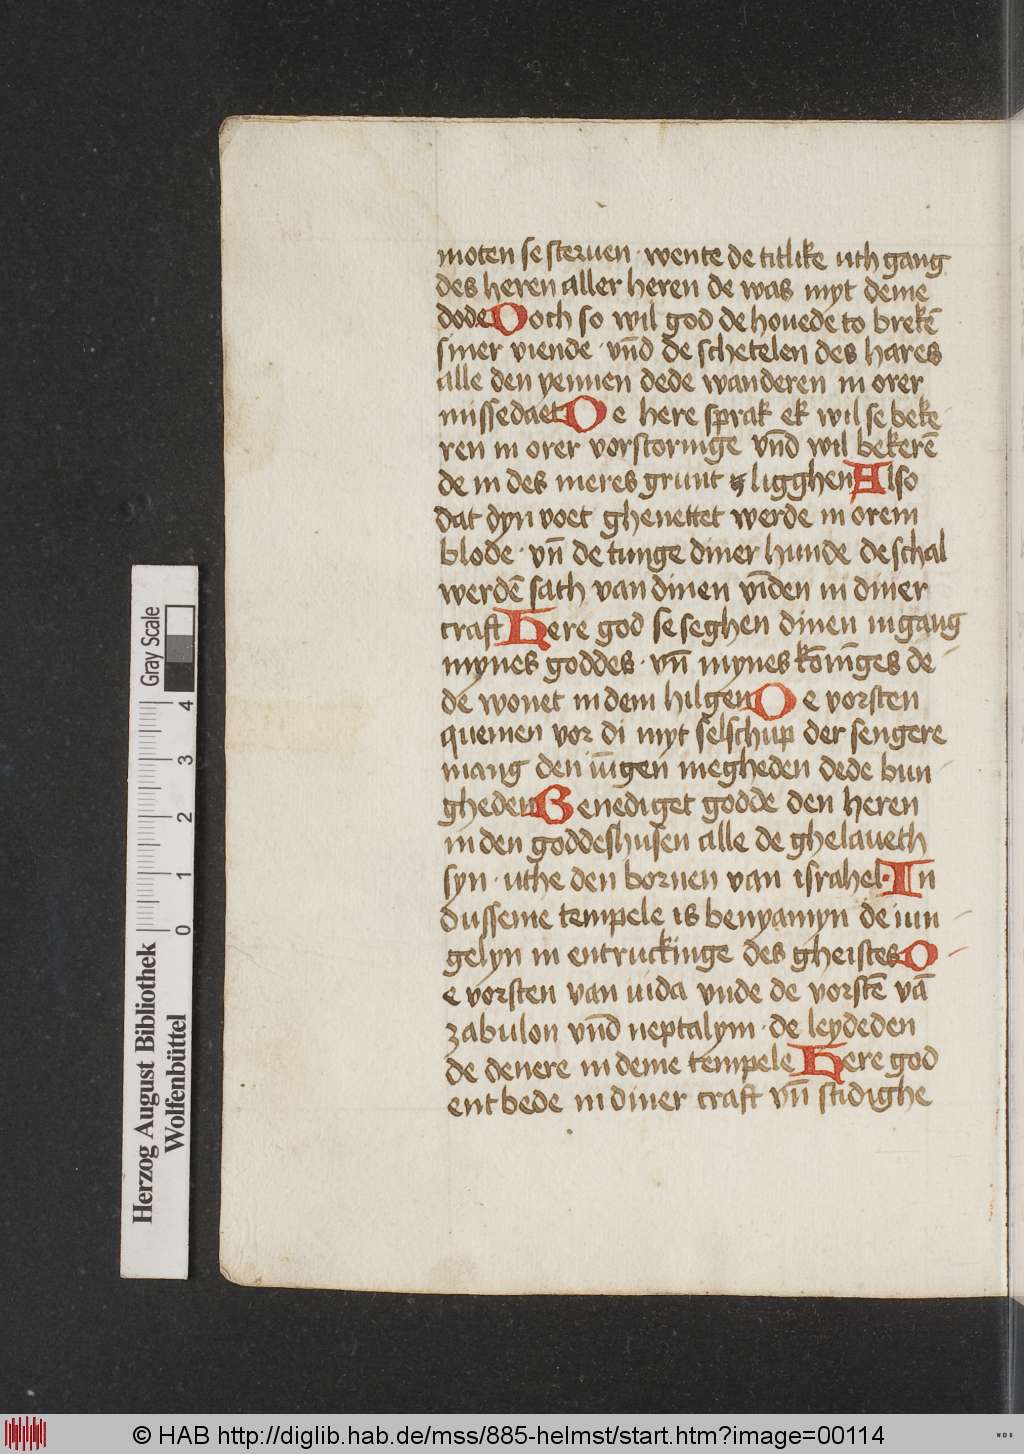 moten se steruen · wente de titlike uth gang
des heren aller heren de was myt deme
dode Doch so wil god de houede to brekē
siner viende · vn̄d de schetelen des hares
alle den yennen dede wanderen in orer
missedaet De here sprak ek wil se beke
ren in orer vorstoringe vn̄d wil bekerē
de in des meres grunt ligghen Also
dat dyn voet ghenettet werde in orem
blode · vn̄ de tunge diner hunde de schal
werdē sath van dinen vīden in diner
craft Here god se seghen dinen ingang
mynes goddes · vn̄ mynes kōnīges de -
de wonet in dem hilgen De vorsten
quemen vor di myt selschup der sengere
mang den iūgen megheden dede bun -
gheden Benediget godde den heren
in den goddeshusen alle de ghelaueth
syn · uthe den bornen van israhel · In
dusseme tempele is benyamyn de iun -
gelyn in entruckinge des gheistes D -
e vorsten van iuda vnde de vorstē vā
zabulon vn̄d neptalym · de leydeden
de denere in deme tempele Here god
entbede in diner craft vn̄ stidighe
Gray Scale
0 1 2 3 4
Herzog August Bibliothek
Wolfenbüttel
© HAB http://diglib.hab.de/mss/885-helmst/start.htm?image=00114